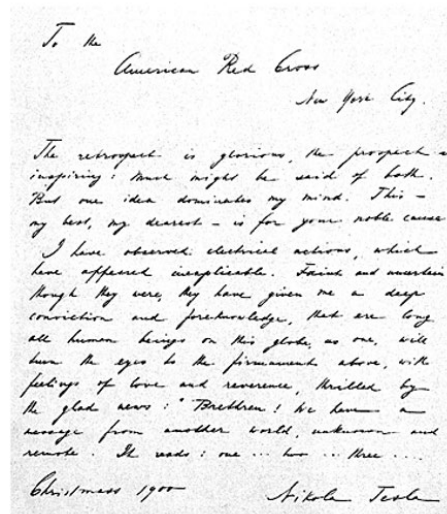 To the
American Red Cross
New York City.
The retrospect is glorious, the prospect is
inspiring: Much might be said of both.
But one idea dominates my mind. This –
my best, my dearest – is for your noble cause.
I have observed electrical actions, which
have appeared inexplicable. Faint and uncertain
though they were, they have given me a deep
conviction and foreknowledge, that ere long
all human beings on this globe, as one, will
turn the eyes to the firmament above, with
feelings of love and reverence, thrilled by
the glad news: "Brethren! We have a
message from another world, unknown and
remote. It reads: one ... two ... three ....
Christmass 1900
Nikola Tesla